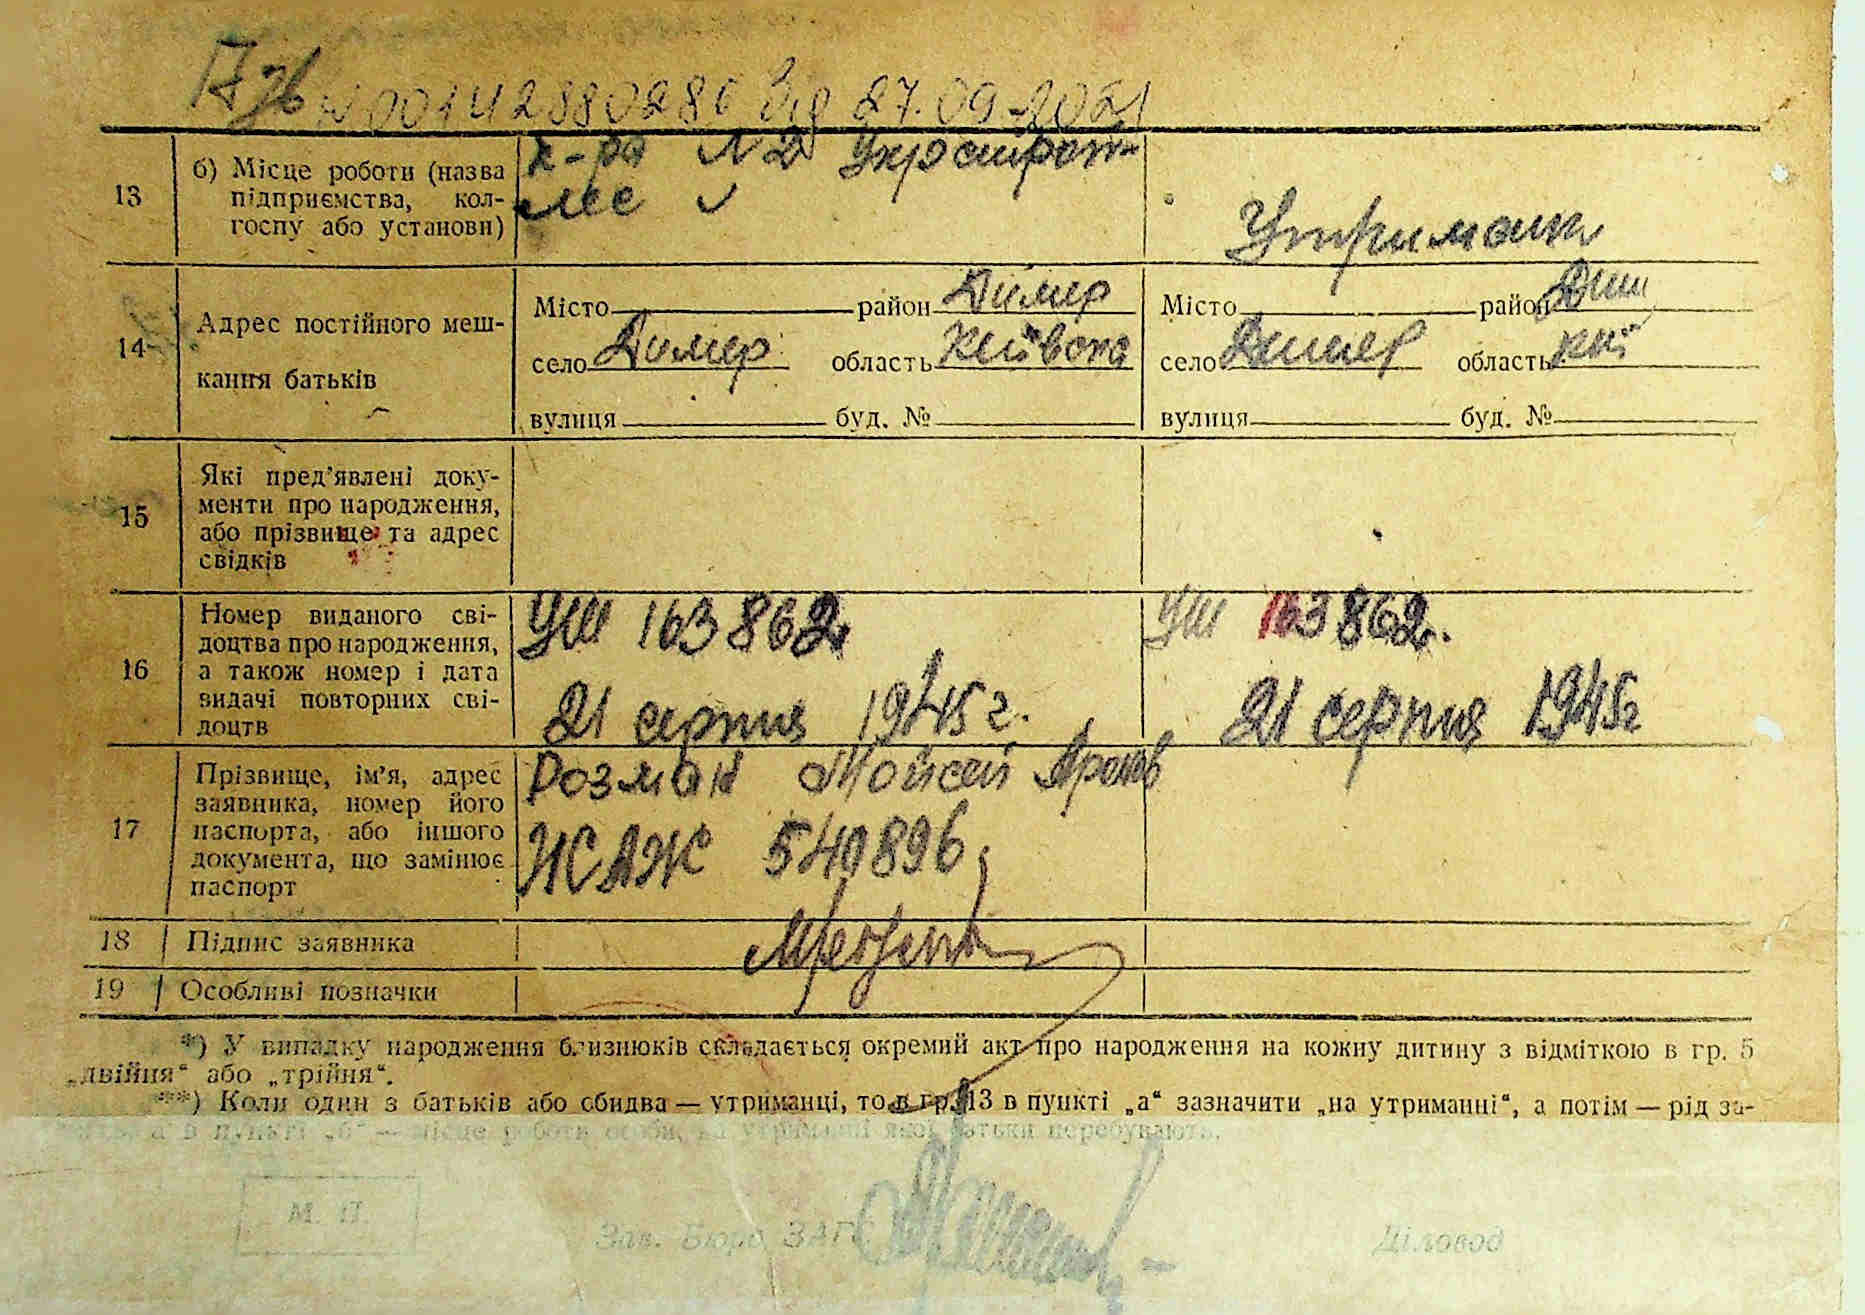 № 00142880286 від 27.09.2021
13
б) Місце роботи (назва
підприємства, кол-
госпу або установи)
к-ра №2
Утриман
14
Адрес постійного меш-
кання батьків
Місто район Димер
село Димер область Київська
вулиця буд. №
Місто район Дим
село Димер область Киї
вулиця буд. №
15
Які пред’явлені доку-
менти про народження,
або прізвище та адрес
свідків
16
Номер виданого сві-
доцтва про народження,
а також номер і дата
видачі повторних сві-
доцтв
УШ 163862
21 серпня 1945 г.
УШ 163862.
21 серпня 1945 г
17
Прізвище, ім’я, адрес
заявника, номер його
паспорта, або іншого
документа, що замінює
паспорт
Розман Мойсей Аронов
ЖАЖ 549896
18 Підпис заявника
19 Особливі позначки
*) У випадку народження близнюків складається окремий акт про народження на кожну дитину з відміткою в гр. 5
„двійня“ або „трійня“.
**) Коли один з батьків або обидва — утриманці, то в гр. 13 в пункті „а“ зазначити „на утриманні“, а потім — рід за-
а в пункті „б“ — місце роботи особи, на утриманні якої батьки перебувають.
М. П.
Зав. Бюро ЗАГС
Діловод